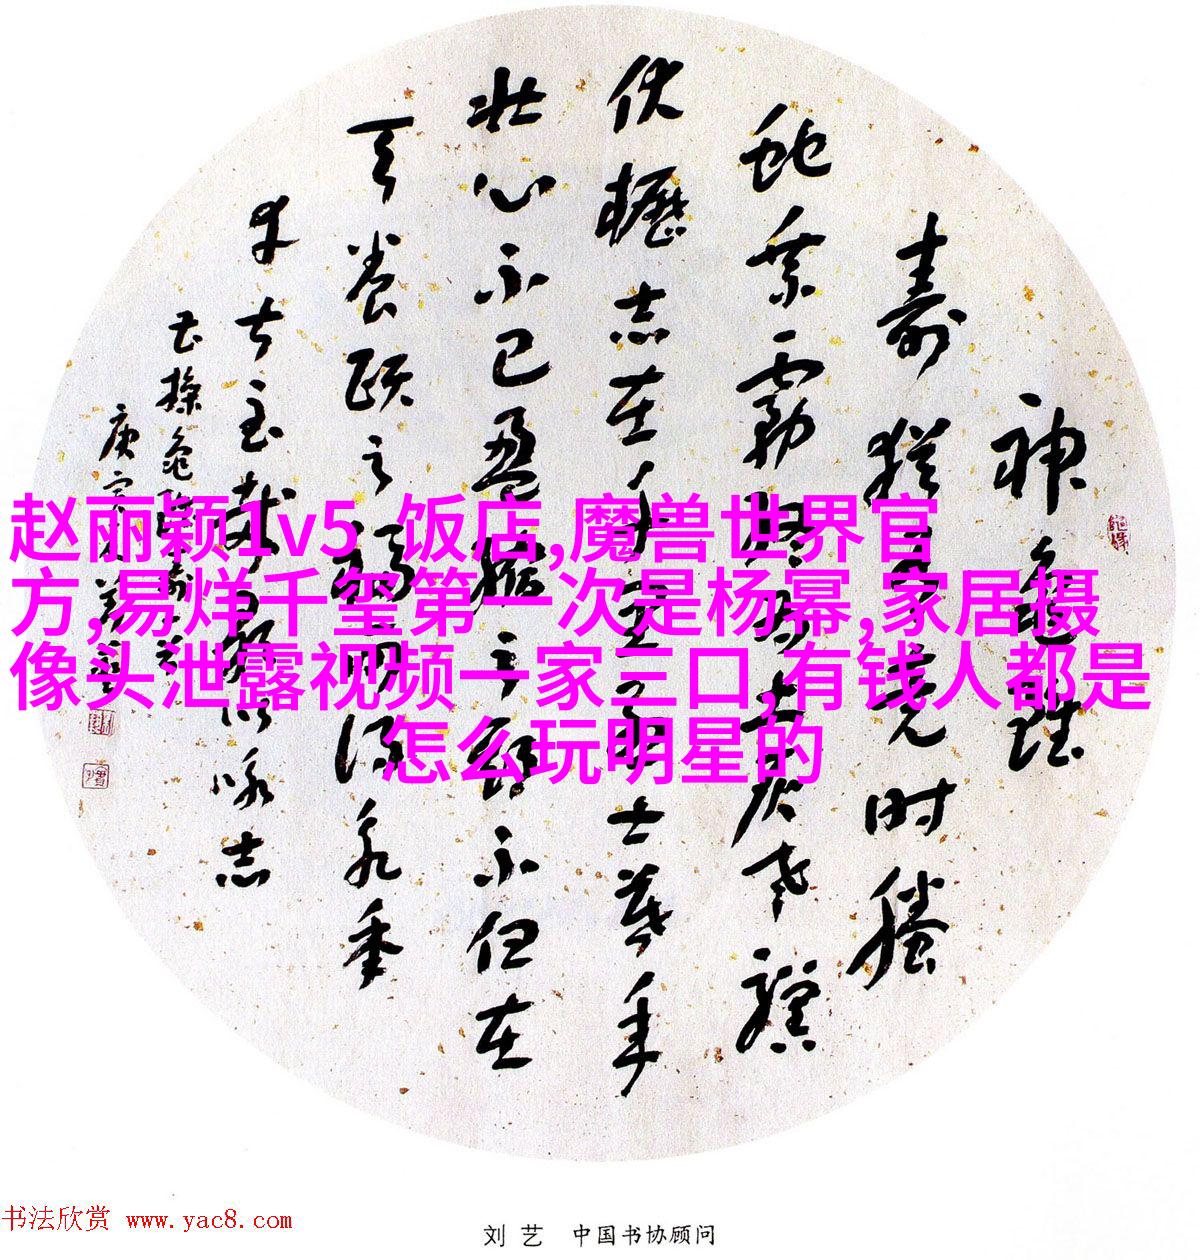 神龟雖
壽猶有竟时騰
蛇乘霧終为土灰老驥
伏櫪志在千里烈士暮年
壮心不已盈缩之期不但在
天养颐之福可得永年
幸甚至哉歌以咏志
曹操龟雖壽
庚寅
赵丽颖1v5 饭店,魔兽世界官
方,易烊千玺第一次是杨幂,家居摄
像头泄露视频一家三口,有钱人都是
怎么玩明星的
书法欣赏 www.yac8.com
刘艺 中国书协顾问